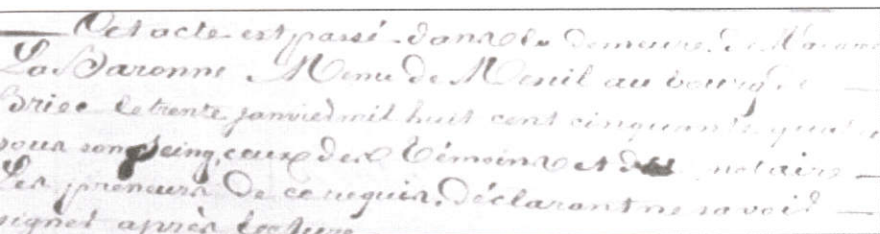 Cet acte est passé dans la demeure de Madame
La Baronne Menu de Mesnil au bourg de
Briec le trente janvier mil huit cent cinquante quatre
sous son seing, ceux des témoins et du notaire
Les preneurs de ce requis, déclarant ne savoir
signer après lecture